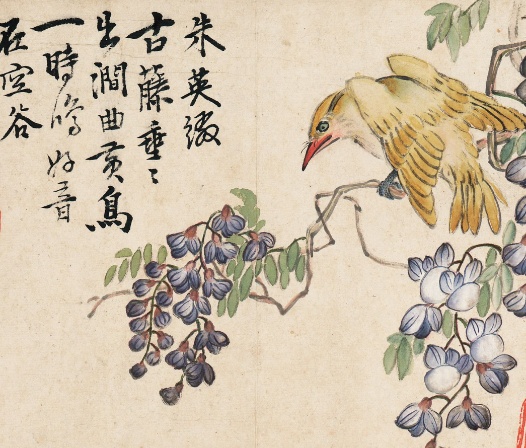 朱英綴
古藤垂〻
出澗曲黄鳥
一時鳴好音
在空谷